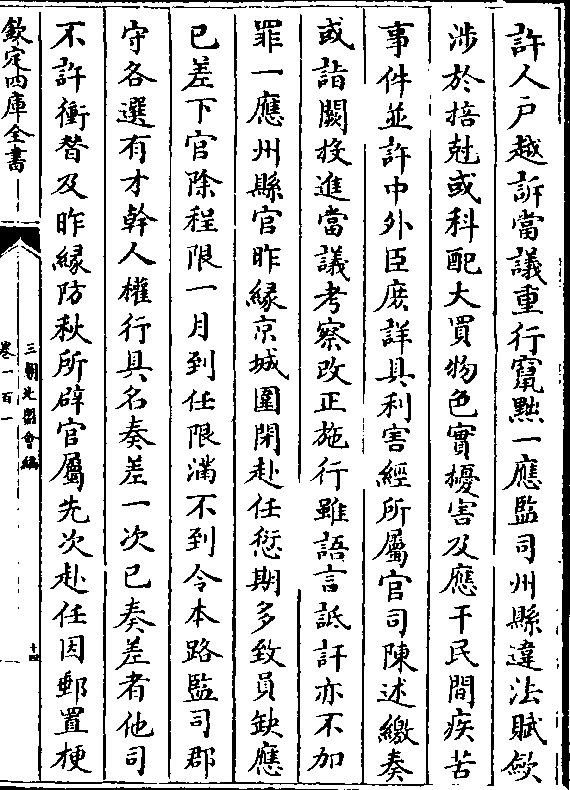 許人戸越訴當議重行竄黜一應監司州縣違法賦斂
涉於掊尅或科配大買物色實擾害及應干民間疾苦
事件並許中外臣庶詳具利害經所屬官司陳述繳奏
或詣闕投進當議考察改正施行雖語言詆訐亦不加
罪一應州縣官昨縁京城圍閉赴任愆期多致員缺應
已差下官除程限一月到任限滿不到令本路監司郡
守各選有才幹人權行具名奏差一次已奏差者他司
不許衝替及昨縁防秋所辟官屬先次赴任因郵置梗
欽定四庫全書
三朝北盟會編
卷一百一
十四